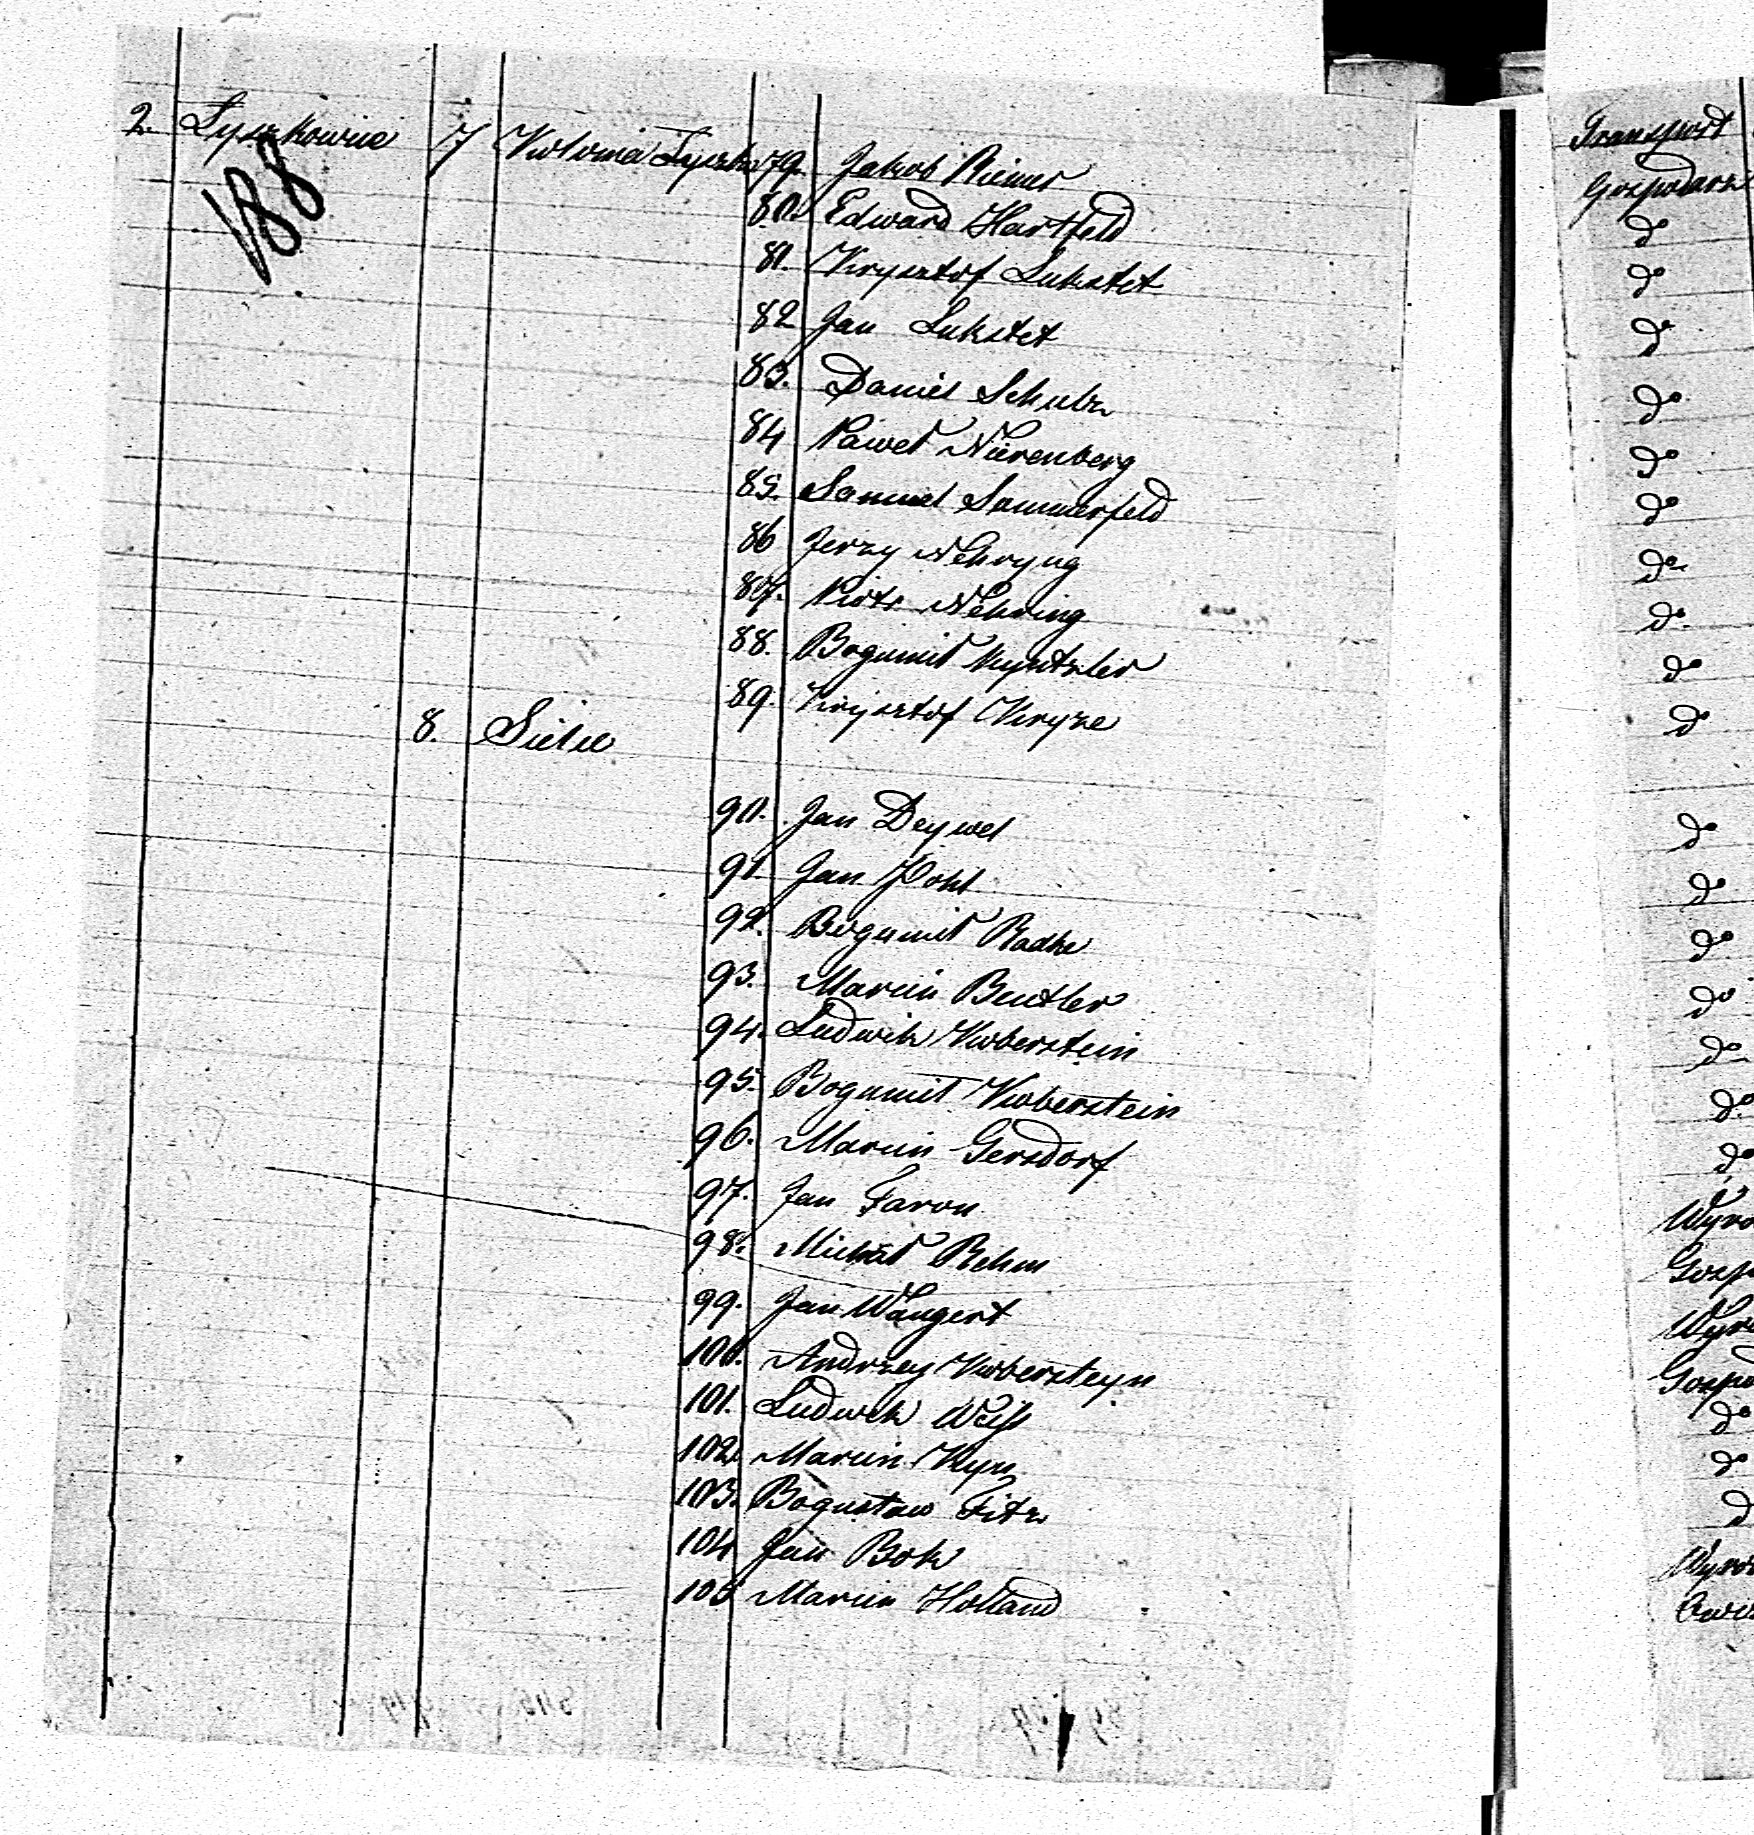 2. Łyszkowice 7 79. Jakob Riemer
188
80. Edward Hartfeld
81. Krysztof Lukstet
82 Jan Lukstet
83. Daniel Schulz
84 Paweł Nürenberg
85. Samuel Sammerfeld
86 Jerzy Nehryng
87. Piotr Nehring
88. Bogumił
89. Krysztof Kryze
8. Sielce
90. Jan Deywel
91 Jan Pohl
92. Bogumił Radke
93. Marcin Beutler
94. Ludwik Koberstein
95. Bogumił Koberstein
96. Marcin Gersdorf
97. Jan Faron
98. Michał Rehm
99. Jan Wangert
100. Andrzey Kobersteyn
101. Ludwik Weiss
102. Marcin
103. Bogusław Fitz
104 Jan Bok
105 Marcin Holland
Transport
Gospodarz
do
do
do
do
do
do
do
do
do
do
do
do
do
do
do
do
do
Wyro
Gosp
Wyro
Gospo
do
do
d
Wyro